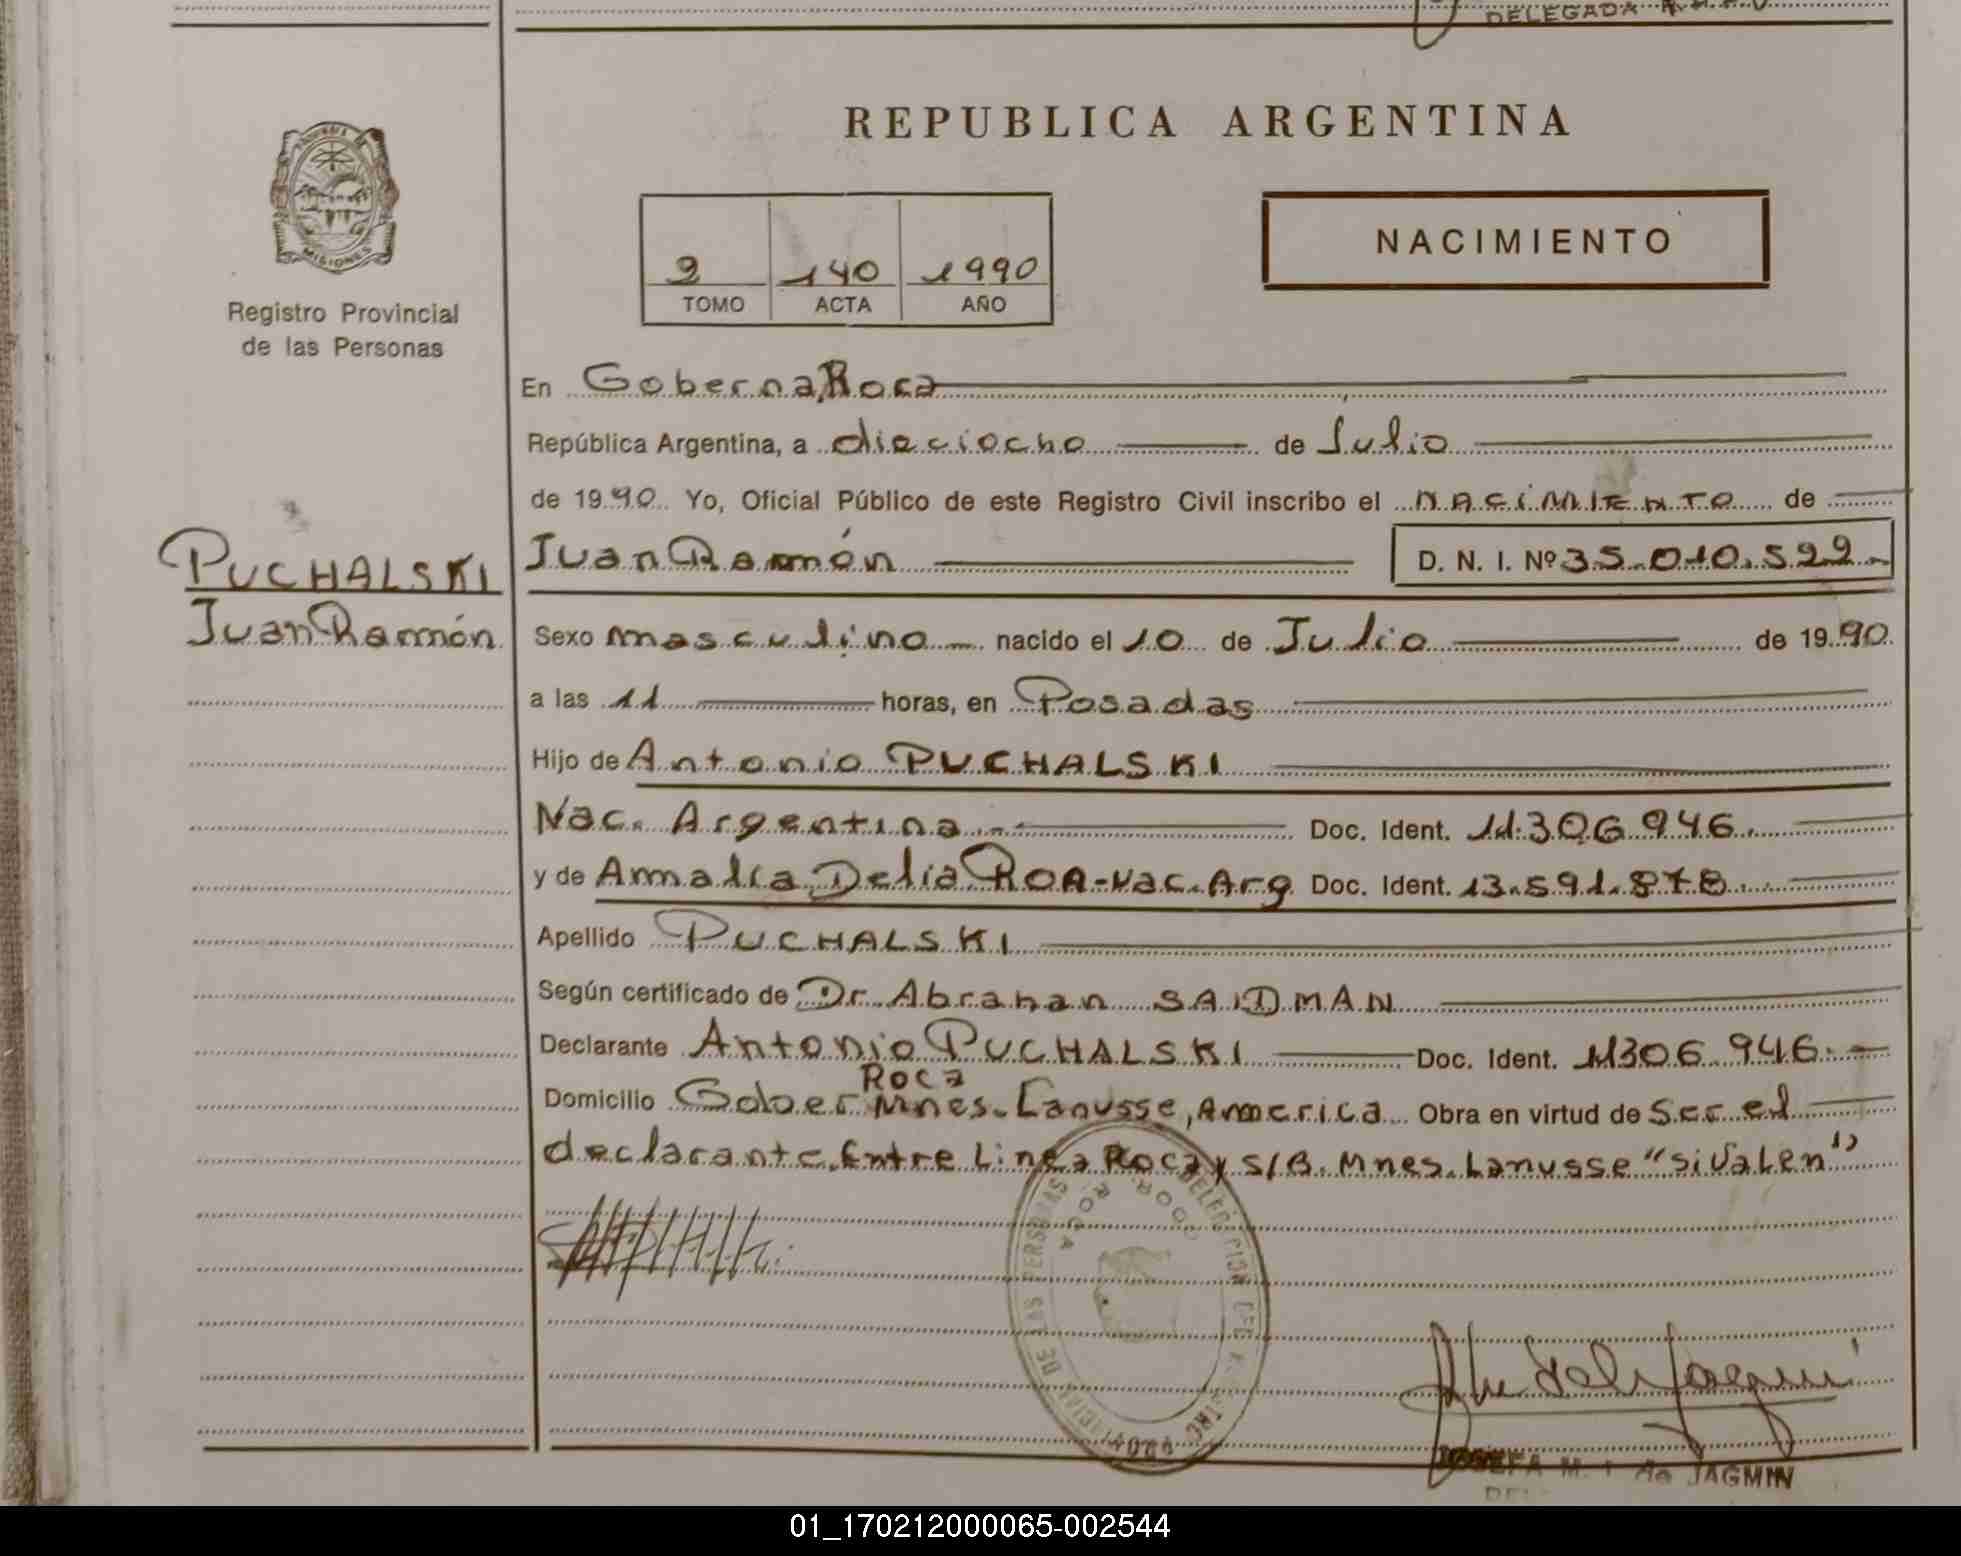 DELEGADA
REPUBLICA ARGENTINA
MISIONES
Registro Provincial
de las Personas
2 140 1990
TOMO ACTA AÑO
NACIMIENTO
En Goberna Roca
República Argentina, a dieciocho de Julio
de 1990 Yo, Oficial Público de este Registro Civil inscribo el NACIMIENTO de
PUCHALSKI
Juan Ramón
Juan Ramón D. N. I. Nº 35.010.522.-
Sexo masculino nacido el 10 de Julio de 1990
a las 11 horas, en Posadas
Hijo de Antonio PUCHALSKI
Nac. Argentina Doc. Ident. 11.306.946.
y de Amalia Delia ROA-Nac.Arg Doc. Ident. 13.591.878.
Apellido PUCHALSKI
Según certificado de Dr. Abrahan SAIDMAN
Declarante Antonio PUCHALSKI Doc. Ident. 11306.946.-
Roca
Domicilio Gober Mnes. Lanusse, America Obra en virtud de Ser el
declarante. Entre Linea Roca y S/B. Mnes. Lanusse "SiValen"
DELEGACION DEL REGISTRO PROVINCIAL DE LAS PERSONAS
GOB. ROCA
JOSEFA M. de JAGMIN
01_170212000065-002544